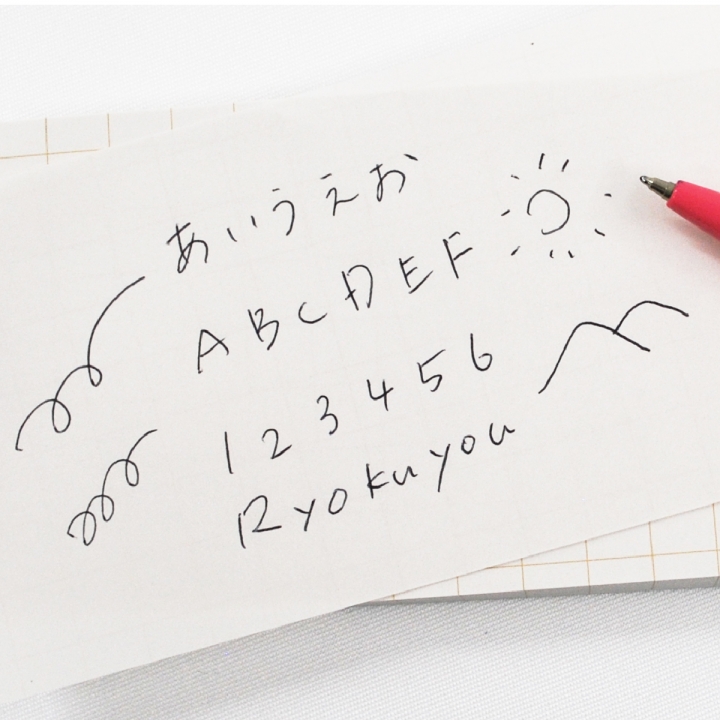 あいうえお
ABCDEF
123456
Ryokuyou